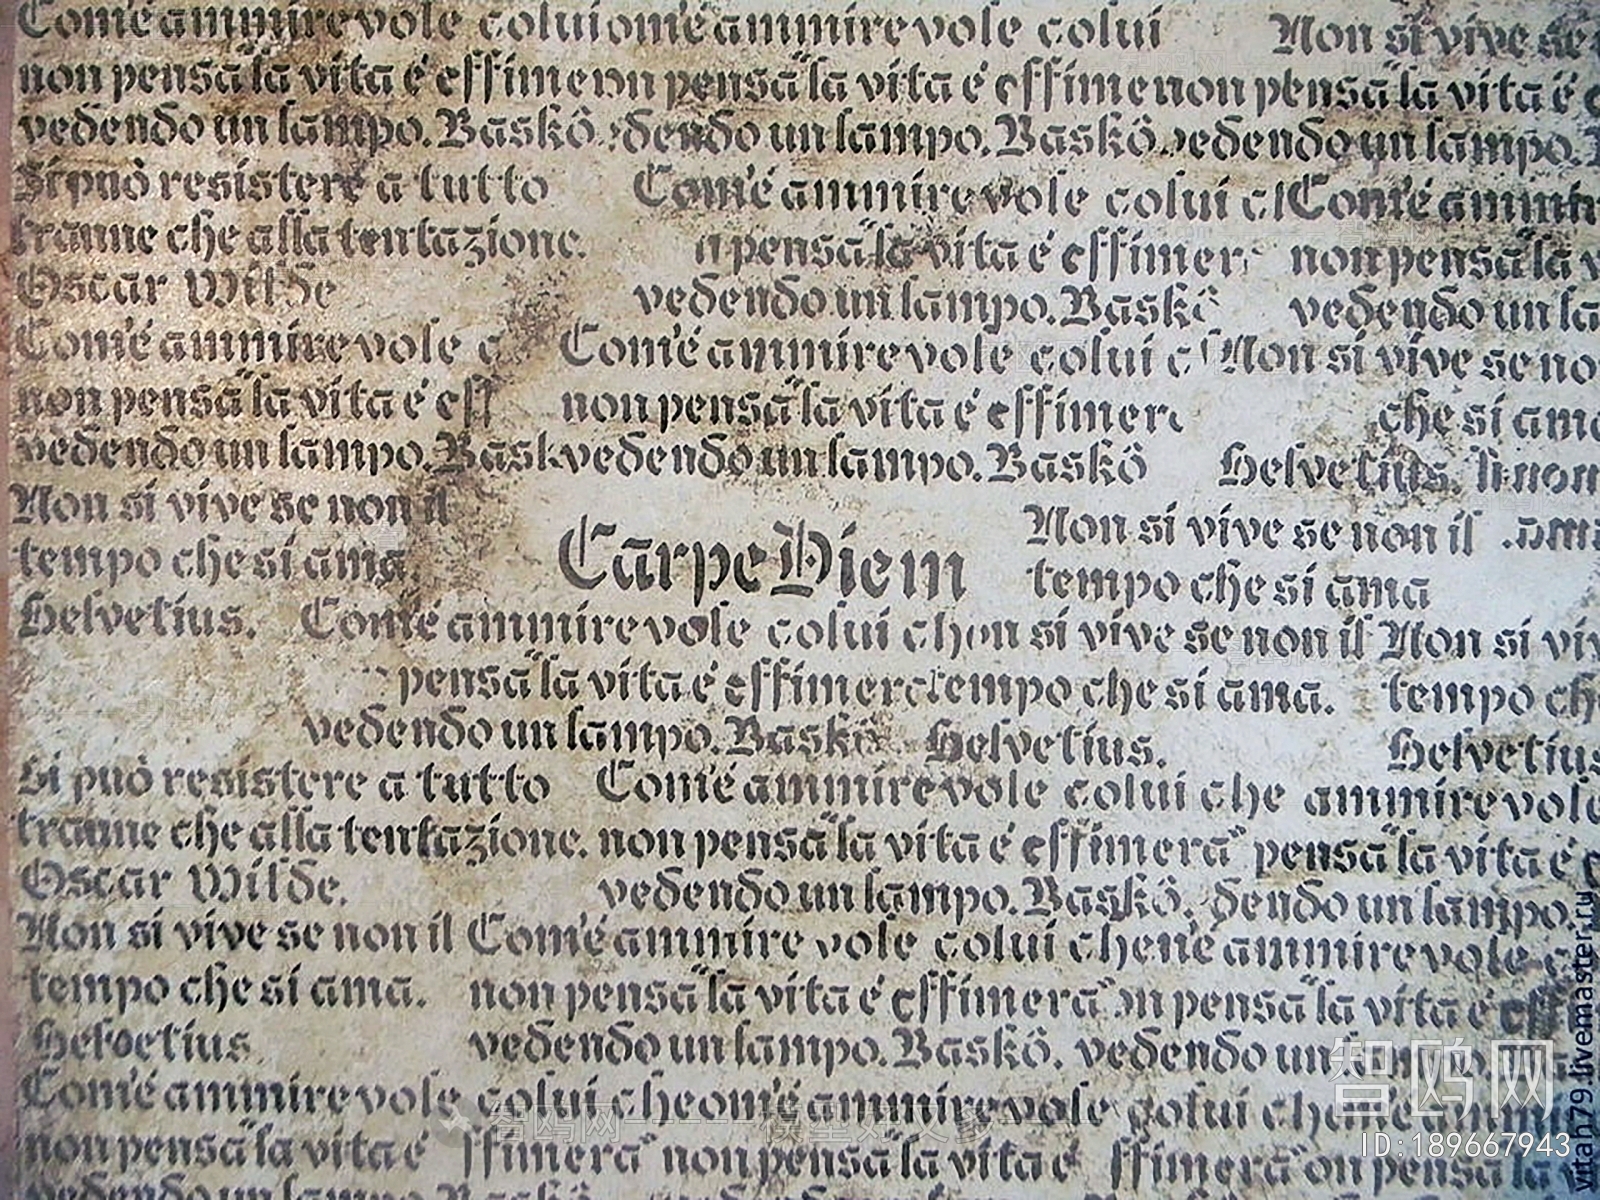 Com'é ammirevole colui om'é ammirevole colui Non si vive se
non pensa "la vita é effime on pensa "la vita é effime non pensa "la vita é
vedendo un lampo. Baskô. dendo un lampo. Baskô. vedendo un lampo.
Si può resistere a tutto Com'é ammirevole colui c Com'é ammir
tranne che alla tentazione. pensa "la vita é effimer non pensa "la v
Oscar Wilde vedendo un lampo. Baskô vedendo un la
Com'é ammirevole c Com'é ammirevole colui c Non si vive se no
non pensa "la vita é eff non pensa "la vita é effimer che si ama
vedendo un lampo. Bask vedendo un lampo. Baskô Helvetius.
Non si vive se non il
Carpe Diem Non si vive se non il
tempo che si ama. tempo che si ama
Helvetius. Com'é ammirevole colui ch on si vive se non il Non si viv
pensa "la vita é effimera tempo che si ama. tempo ch
vedendo un lampo. Baskô Helvetius. Helvetius
Si può resistere a tutto Com'é ammirevole colui che ammirevole
tranne che alla tentazione. non pensa "la vita é effimera" pensa "la vita é
Oscar Wilde. vedendo un lampo. Baskô. dendo un lampo.
Non si vive se non il Com'é ammirevole colui che m'é ammirevole
tempo che si ama. non pensa "la vita é effimera" on pensa "la vita é eff
Helvetius. vedendo un lampo. Baskô. vedendo un lampo.
Com'é ammirevole colui che om'é ammirevole colui che m'é ammi
non pensa "la vita é ffimera" non pensa "la vita é ffimera" on pensa "la
vedendo un lampo. Baskô
智鸥网
ID:189667943
vitah79.livemaster.ru